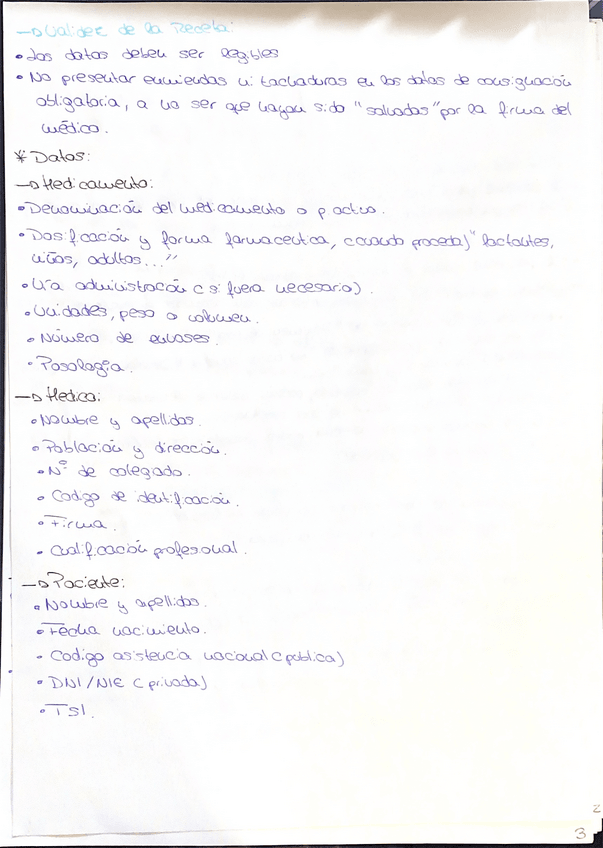 → Validez de la Receta:
• Los datos deben ser legibles
• No presentar enmiendas ni tachaduras en los datos de consignación
obligatoria, a no ser que hayan sido "salvadas" por la firma del
médico.
* Datos:
→ Medicamento:
• Denominación del medicamento o p activo.
• Dosificación y forma farmaceutica, cuando proceda) "lactantes,
niños, adultos..."
• Vía administración (si fuera necesario).
• Unidades, peso o volumen.
• Número de envases.
• Posología.
→ Medico:
• Nombre y apellidos.
• Población y dirección.
• Nº de colegiado.
• Codigo de identificación.
• Firma.
• Cualificación profesional.
→ Paciente:
• Nombre y apellidos.
• Fecha nacimiento.
• Codigo asistencia nacional (publica)
• DNI/NIE (privada)
• TSI.
2
3